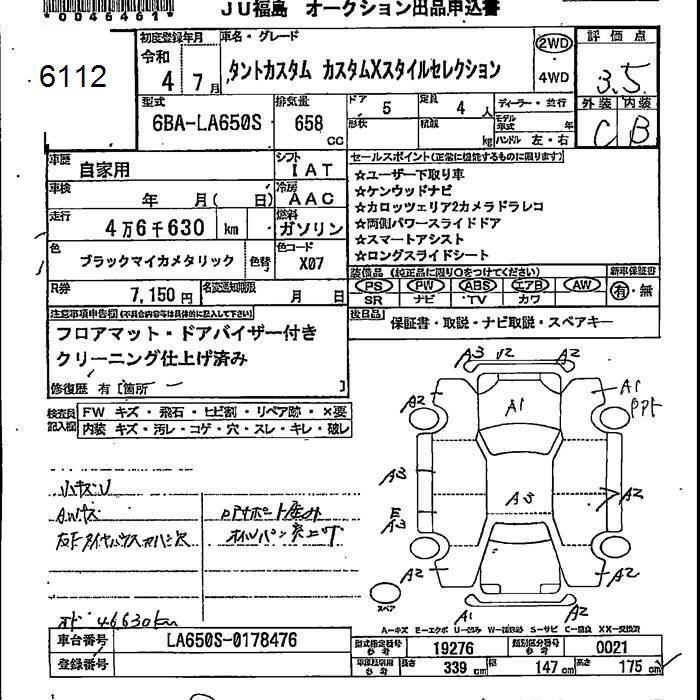 *0046461*
JU福島 オークション出品申込書
6112
初度登録年月
令和 4 7月
車名・グレード
タントカスタム カスタムXスタイルセレクション
2WD
4WD
評価点
3.5
外装 内装
C B
型式
6BA-LA650S
排気量
658 cc
ドア 5
定員 4 人
形状
積載 kg
ディーラー・並行
モデル年式 年
ハンドル 左・右
車歴
自家用
シフト
IAT
車検
年 月( 日)
冷房
AAC
走行
4万6千630 km
燃料
ガソリン
色
ブラックマイカメタリック
色替
色コード
X07
R券
7,150円
名変通知期限
月 日
セールスポイント(正常に機能するものに限ります)
☆ユーザー下取り車
☆ケンウッドナビ
☆カロッツェリア2カメラドラレコ
☆両側パワースライドドア
☆スマートアシスト
☆ロングスライドシート
装備品 (純正品に限り○をつけてください)
PS PW ABS エアB AW
SR ナビ TV カワ
新車保証書
有・無
後日品
保証書・取説・ナビ取説・スペアキー
注意事項申告欄(不具合内容等は具体的に記入して下さい)
フロアマット・ドアバイザー付き
クリーニング仕上げ済み
修復歴 有 [箇所 ]
検査員記入欄
FW キズ・飛石・ヒビ割・リペア跡・×要
内装 キズ・汚レ・コゲ・穴・スレ・キレ・破レ
小キズU
AWキズ
オド 46630km
A3 U2 A2
A2
A1
A1
A3
A3
A2
E
A3
A2
A2
A1
A2
スペア
A-キズ E-エクボ U-凹み W-補修跡 S-サビ C-腐食 XX-交換済
車台番号
LA650S-0178476
登録番号
型式指定番号 参考
19276
類別区分番号 参考
0021
車庫証明用 参考
長さ 339 cm
幅 147 cm
高さ 175 cm